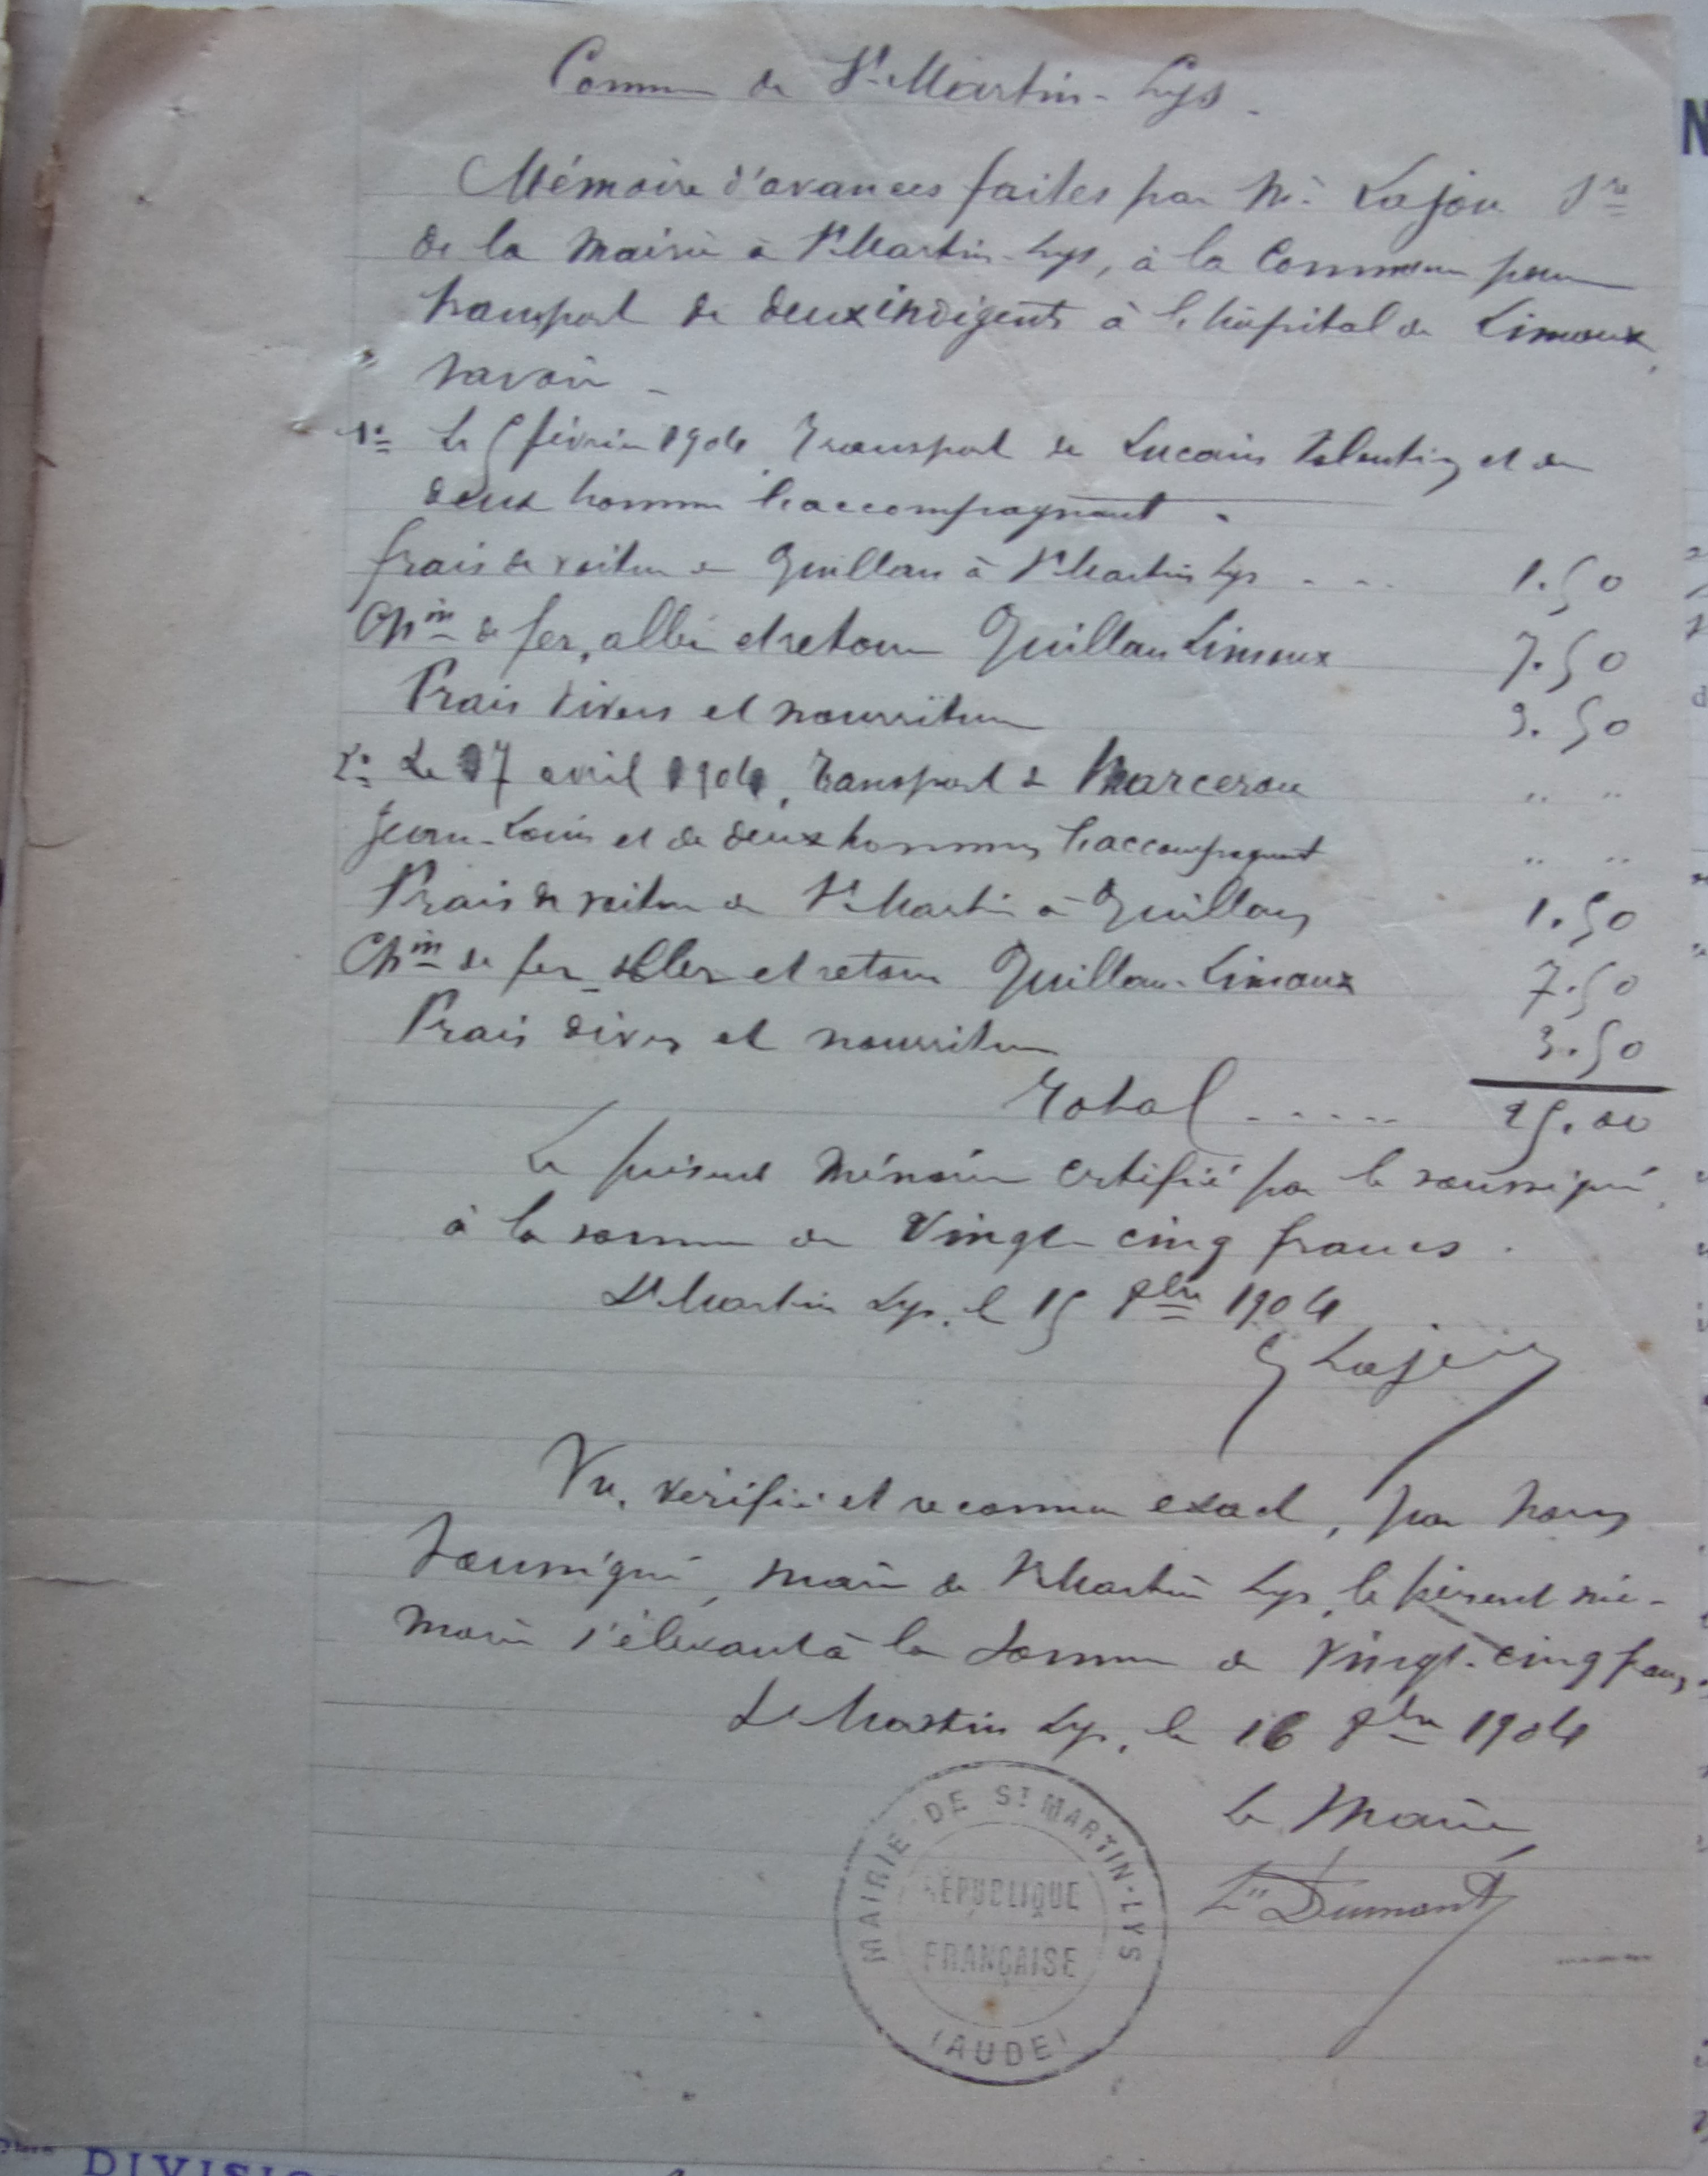 Commune de St Martin-Lys.
Mémoire d'avances faites par Mr. Lajou Sre
de la Mairie à St Martin-Lys, à la Commune pour
transport de deux indigents à l'hôpital de Limoux,
savoir -
1o Le 5 février 1904 Transport de Lucain Valentin et de
deux hommes l'accompagnant.
frais de voiture de Quillan à St Martin Lys . . . 1.50
Chin de fer, aller et retour Quillan Limoux 7.50
Frais divers et nourriture 3.50
2o Le 17 avril 1904, Transport de Marcerou " "
Jean-Louis et de deux hommes l'accompagnant " "
Frais de voiture de St Martin à Quillan 1.50
Chin de fer aller et retour Quillan-Limoux 7.50
Frais divers et nourriture 3.50
Total ..... 25.00
Le présent Mémoire certifié par le soussigné,
à la somme de Vingt cinq francs.
St Martin Lys, le 15 9bre 1904
Lajou
Vu, vérifié et reconnu exact, par nous
Soussigné, maire de St Martin Lys, le présent mé-
moire s'élevant à la Somme de Vingt-cinq francs.
St Martin Lys, le 16 9bre 1904
Le Maire,
Dumont
MAIRIE DE ST MARTIN-LYS
RÉPUBLIQUE
FRANÇAISE
(AUDE)